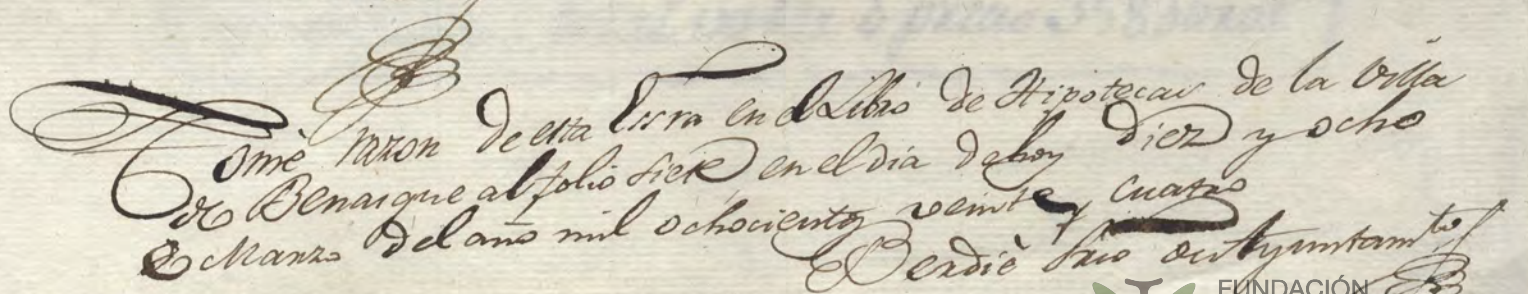 Tomè razon de esta Essra en el Libro de Hipotecas de la Villa
de Benasque al folio siete en el dia de hoy diez y ocho
de Marzo del año mil ochocientos veinte y cuatro
Berdiè Srio de Ayuntamto
FUNDACIÓN